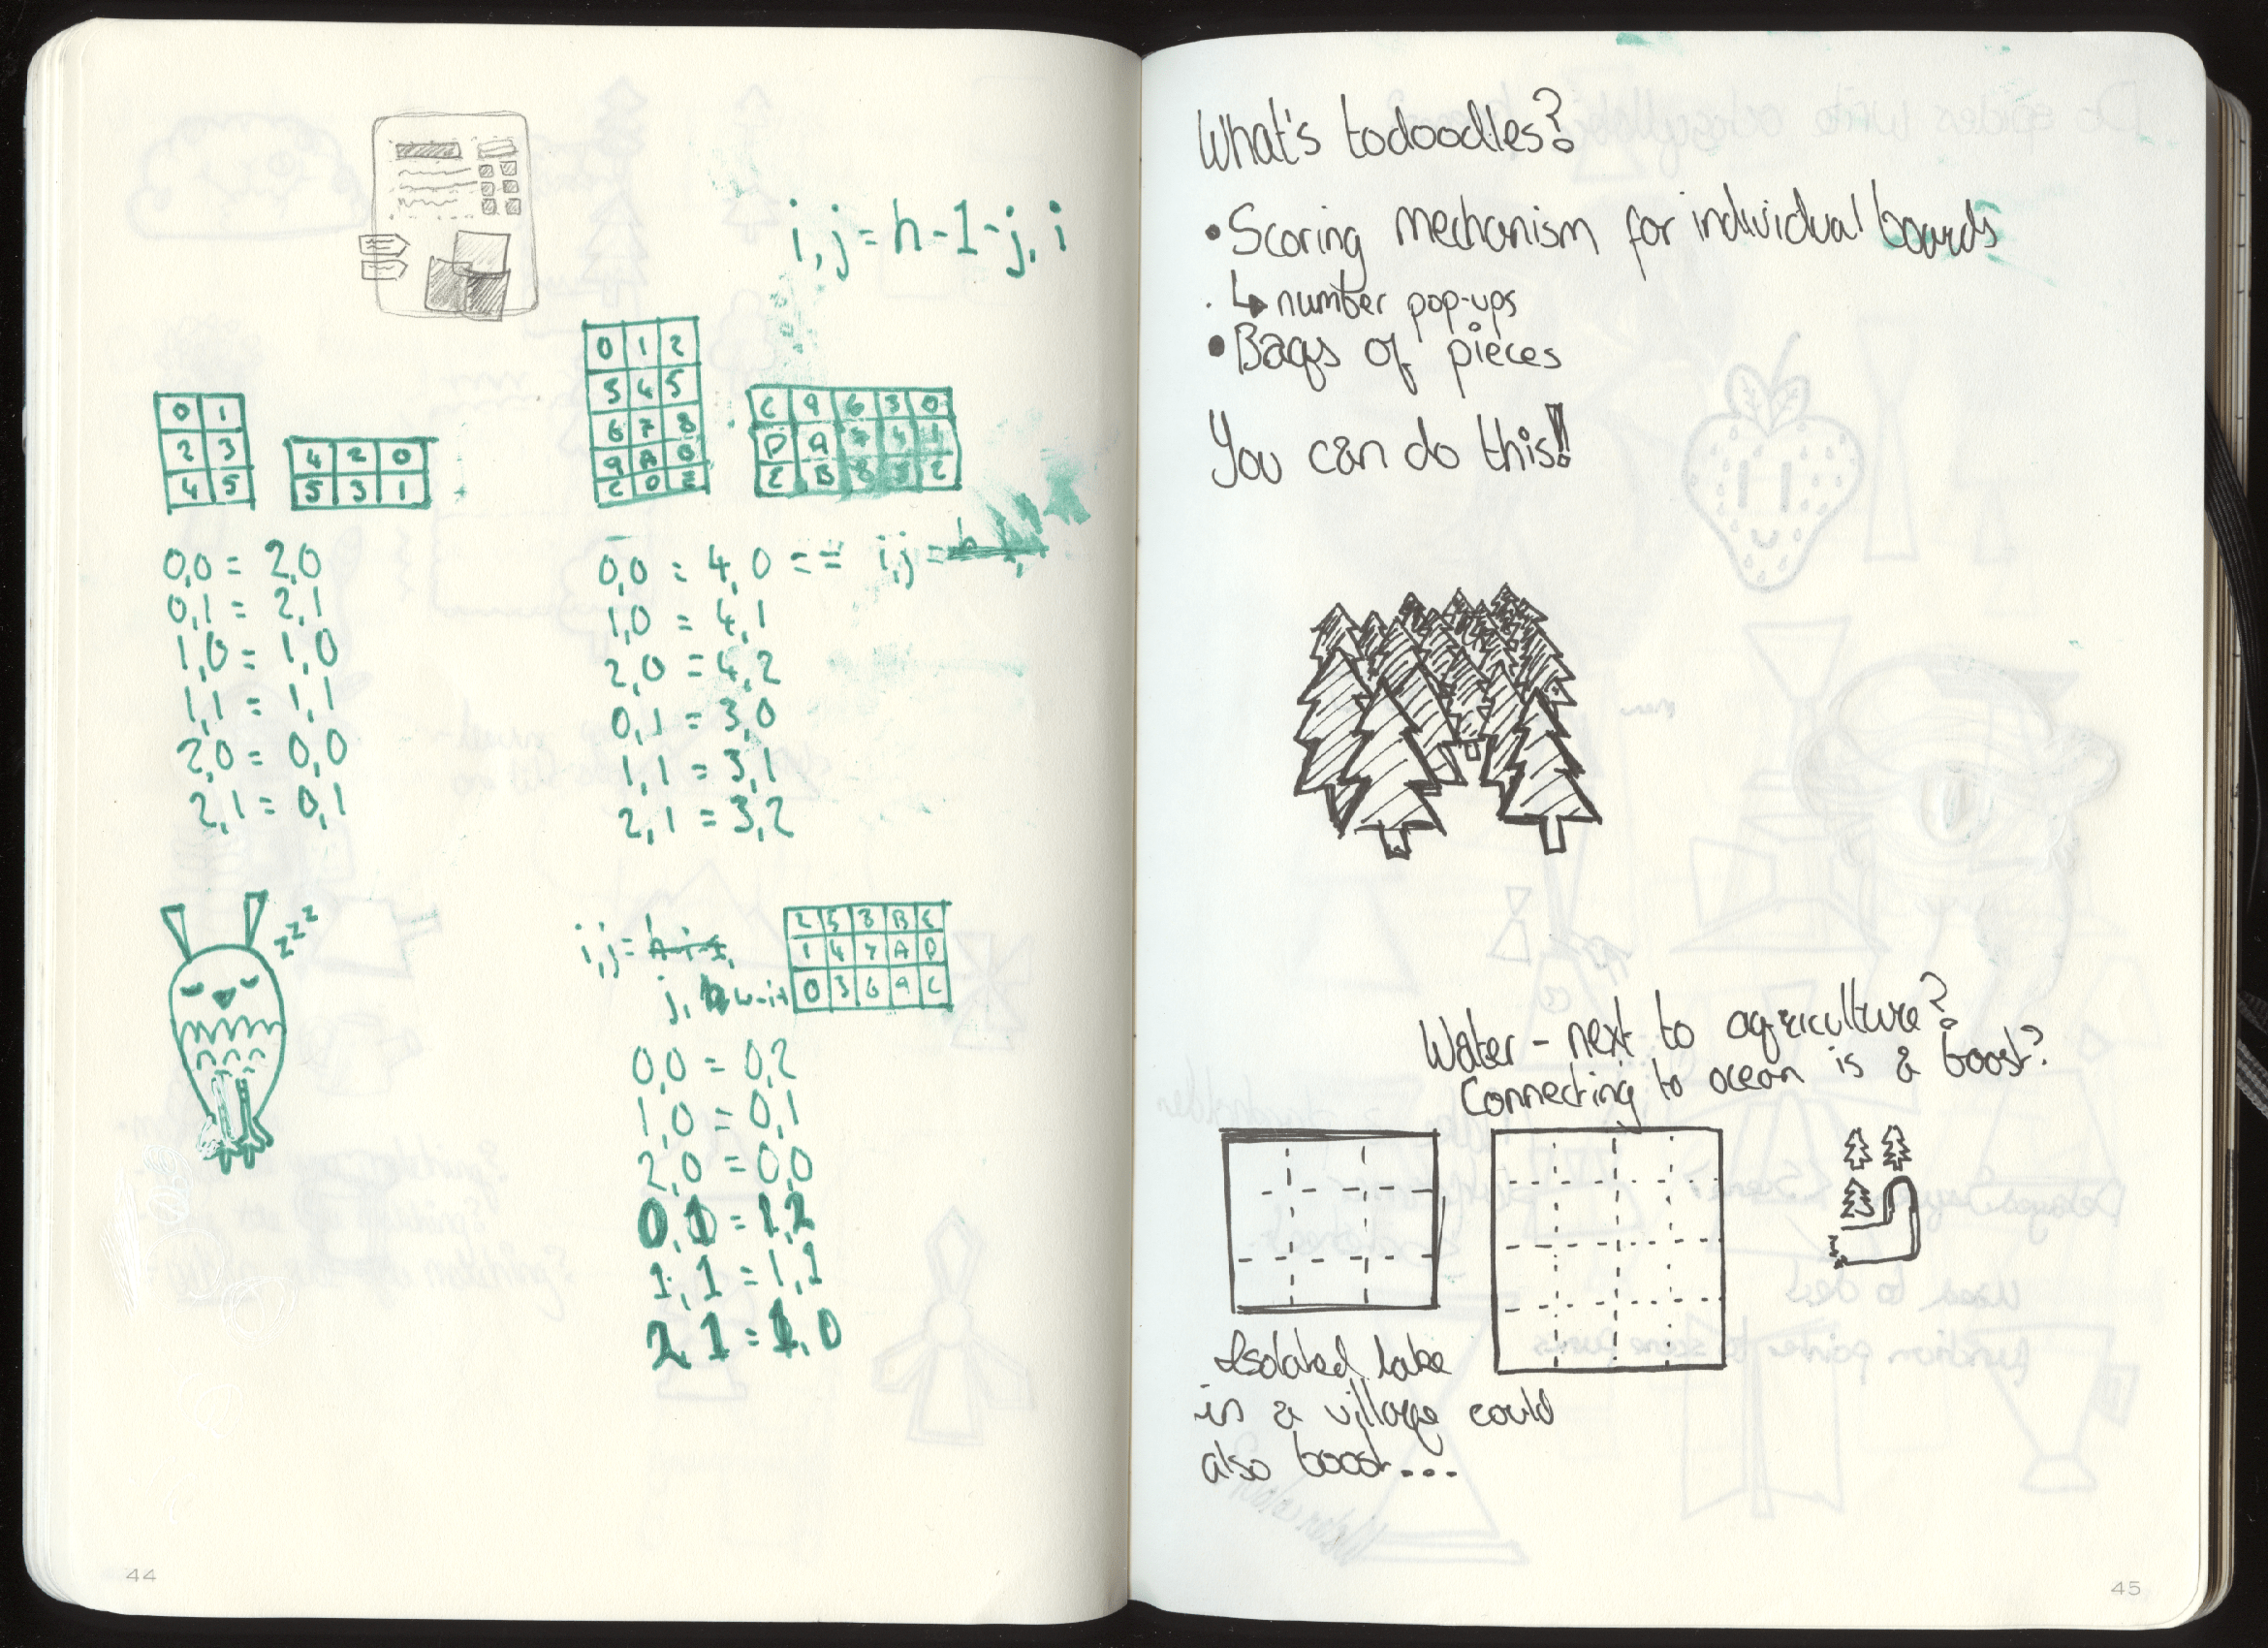 i, j = h - 1 - j, i
0 1
2 3
4 5
4 2 0
5 3 1
0 1 2
3 4 5
6 7 8
9 A B
C D E
C 9 6 3 0
D A 7 4 1
E B 8 5 2
0,0 = 2,0
0,1 = 2,1
1,0 = 1,0
1,1 = 1,1
2,0 = 0,0
2,1 = 0,1
0,0 = 4,0 = = i,j =
1,0 = 4,1
2,0 = 4,2
0,1 = 3,0
1,1 = 3,1
2,1 = 3,2
zzz
i,j =
j, w-i+
2 5 8 B E
1 4 7 A D
0 3 6 9 C
0,0 = 0,2
1,0 = 0,1
2,0 = 0,0
0,1 = 1,2
1,1 = 1,1
2,1 = 1,0
44
What's todoodles?
• Scoring mechanism for individual boards
↳ number pop-ups
• Bags of pieces
You can do this!!
Water - next to agriculture?
Connecting to ocean is a boost?
Isolated lake
in a village could
also boost...
45